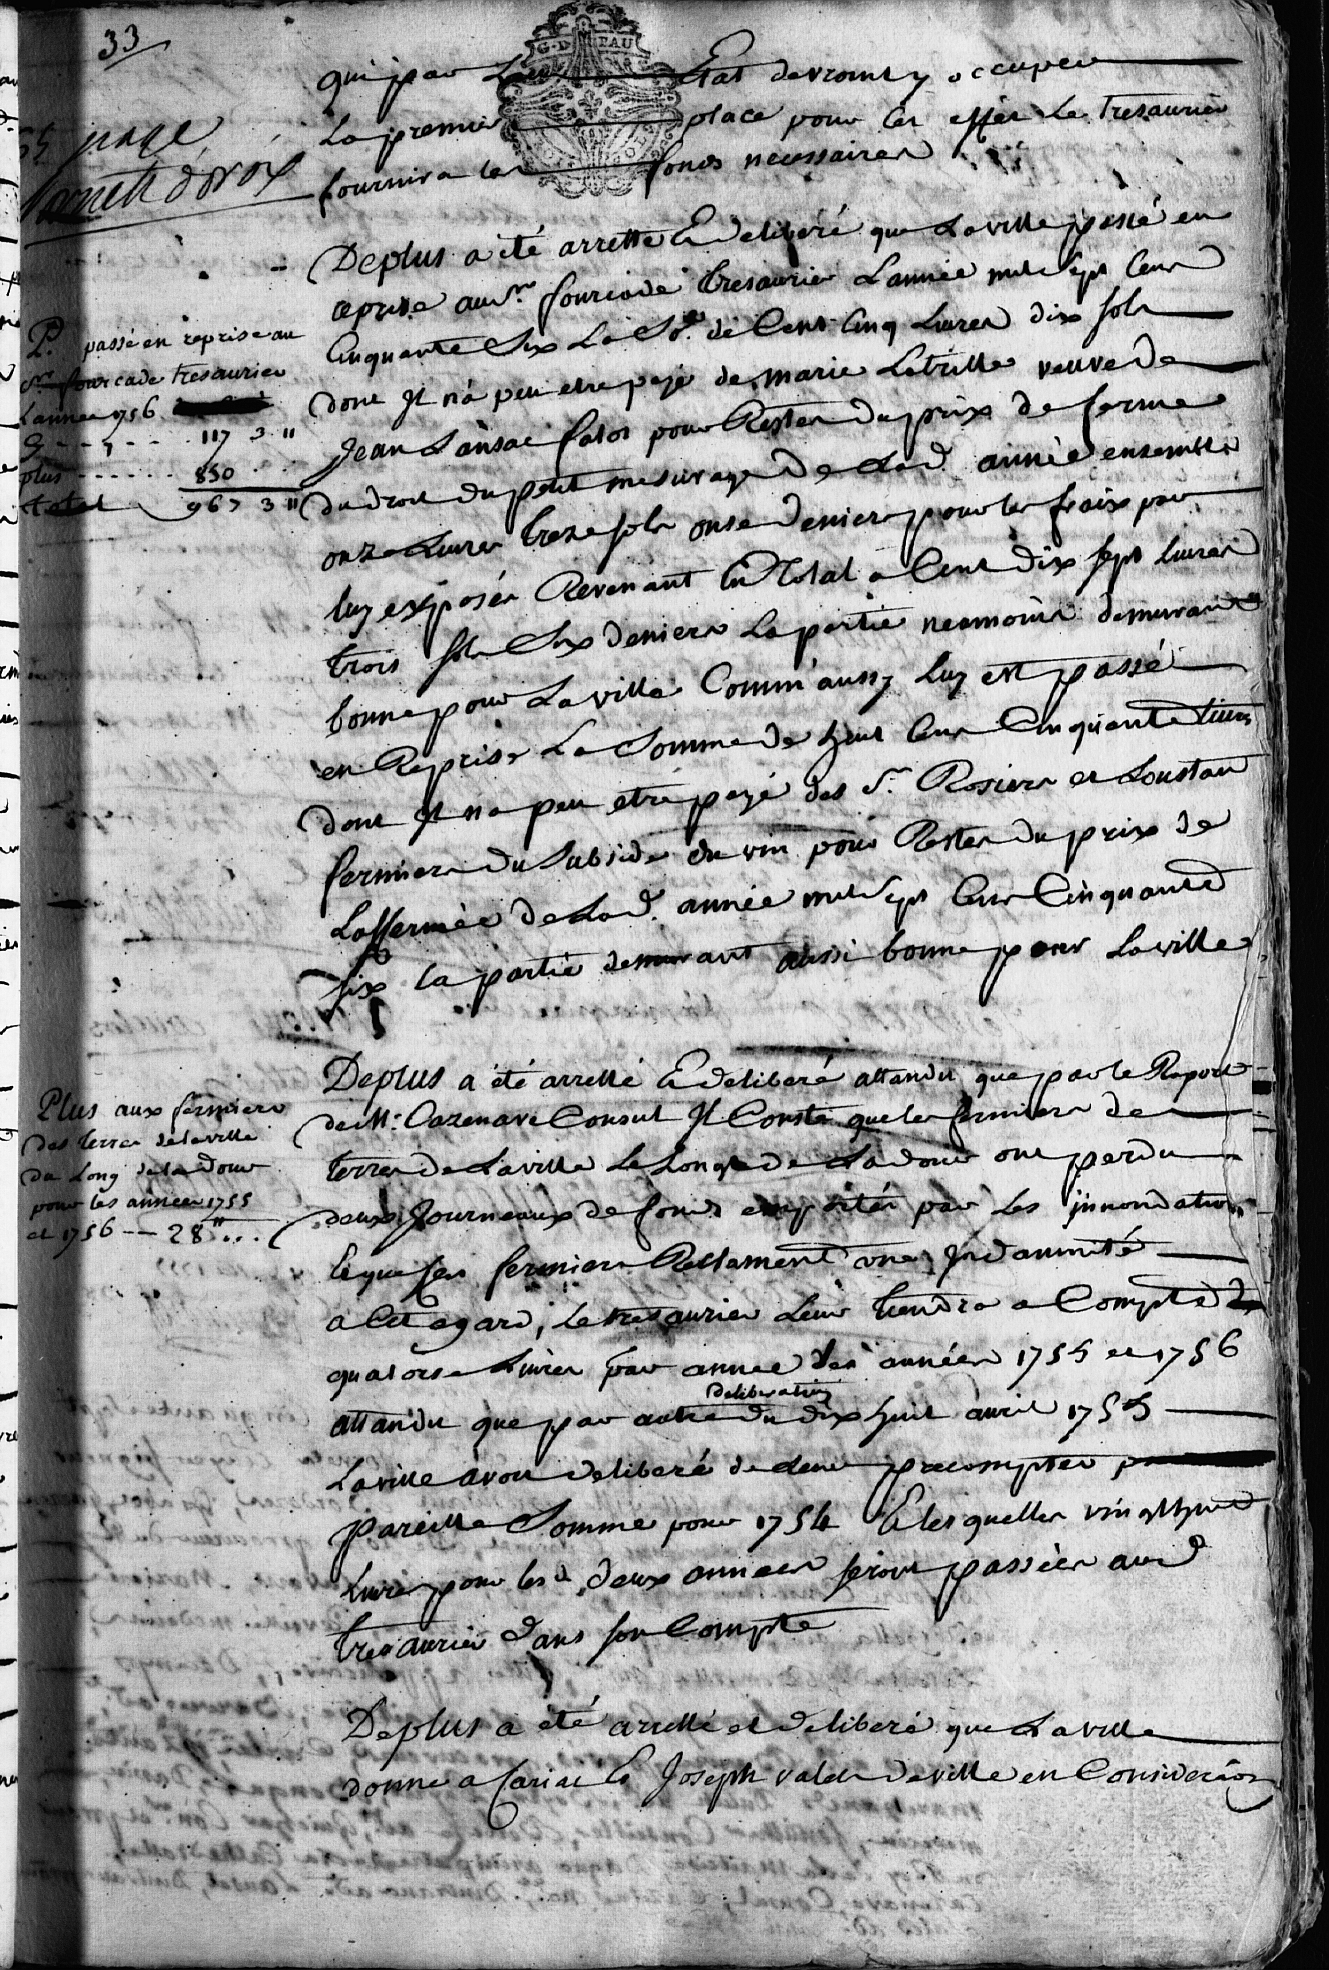 33
page
G.D PAU
qui par Leur Etat devront y occuper
La premiere place pour cet effet Le Tresaurier
fournira les fonds necessaires
Deplus a été arretté & deliberé que La ville passé en
reprise au Sr. fourcade tresaurier L'année mil Sept Cens
Cinquante Six La Sõe. de Cent Cinq Livres dix sols
dont Jl n'a peu etre payé de marie Latrille veuve de
Jean Lansac fator pour Restes du prix de ferme
du droit du petit mesurage de Lad. année ensemble
onze Livres treze sols onse deniers pour les fraix par
luy exposés Revenant En Total a Cent dix sept livres
trois sols Six deniers La partie neamoins demurant
bonne pour La ville Comm'aussy luy est passé
en Reprise La Somme de huit Cens Cinquante livres
dont Jl na peu etre payé des Sr. Rosiers et Loustau
fermiers du Subside du vin pour Restes du prix de
L'affermée de Lad. année mil Sept Cens Cinquante
six la partie demurant aussi bonne pour La ville
P. passé en reprise au
Sr. fourcade tresaurier
L'année 1756
117 3 "
plus 850
total 967 3 "
Deplus a été arretté & deliberé attandu que par le Raport
de Mr. Cazenave Consul Jl Conste que les fermiers de
terres de La ville Le Long de Ladour ont perdu
deux Journeaux de fonds emportés par Les jnnondations
Et que ses fermiers Reclament une Jndamnité
a Cet egard, le tresaurier Leur tiendra a Compte
quatorse Livres par année des années 1755 et 1756
attandu que par autre deliberation du dix huit avril 1755
La ville avoit deliberé de leur precompter
pareille Somme pour 1754 & lesquelles vingt huit
Livres pour lesd. deux annees seront passées aud
tresaurier dans son Compte
Plus aux fermiers
des terres de la ville
du Long de la dour
pour les annees 1755
et 1756 -- 28 "
Deplus a été arretté et deliberé que La ville
donne a Joseph valet de ville en Consideraõn